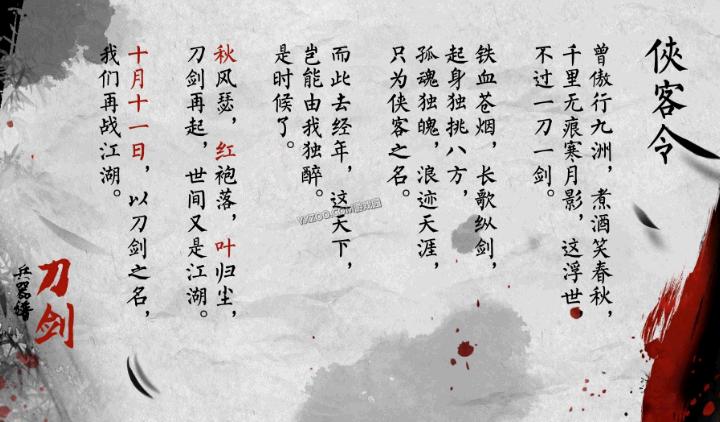 俠客令
曾傲行九洲，煮酒笑春秋，
千里无痕寒月影，这浮世，
不过一刀一剑。
铁血苍烟，长歌纵剑，
起身独挑八方，
孤魂独魄，浪迹天涯，
只为侠客之名。
而此去经年，这天下，
岂能由我独醉。
是时候了。
秋风瑟，红袍落，叶归尘，
刀剑再起，世间又是江湖。
十月十一日，以刀剑之名，
我们再战江湖。
刀剑
兵器谱
YXZOO.COM游戏园